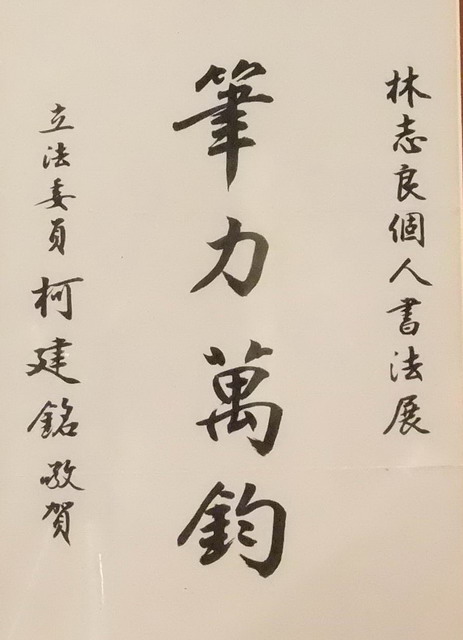 林志良個人書法展
筆力萬鈞
立法委員柯建銘敬賀